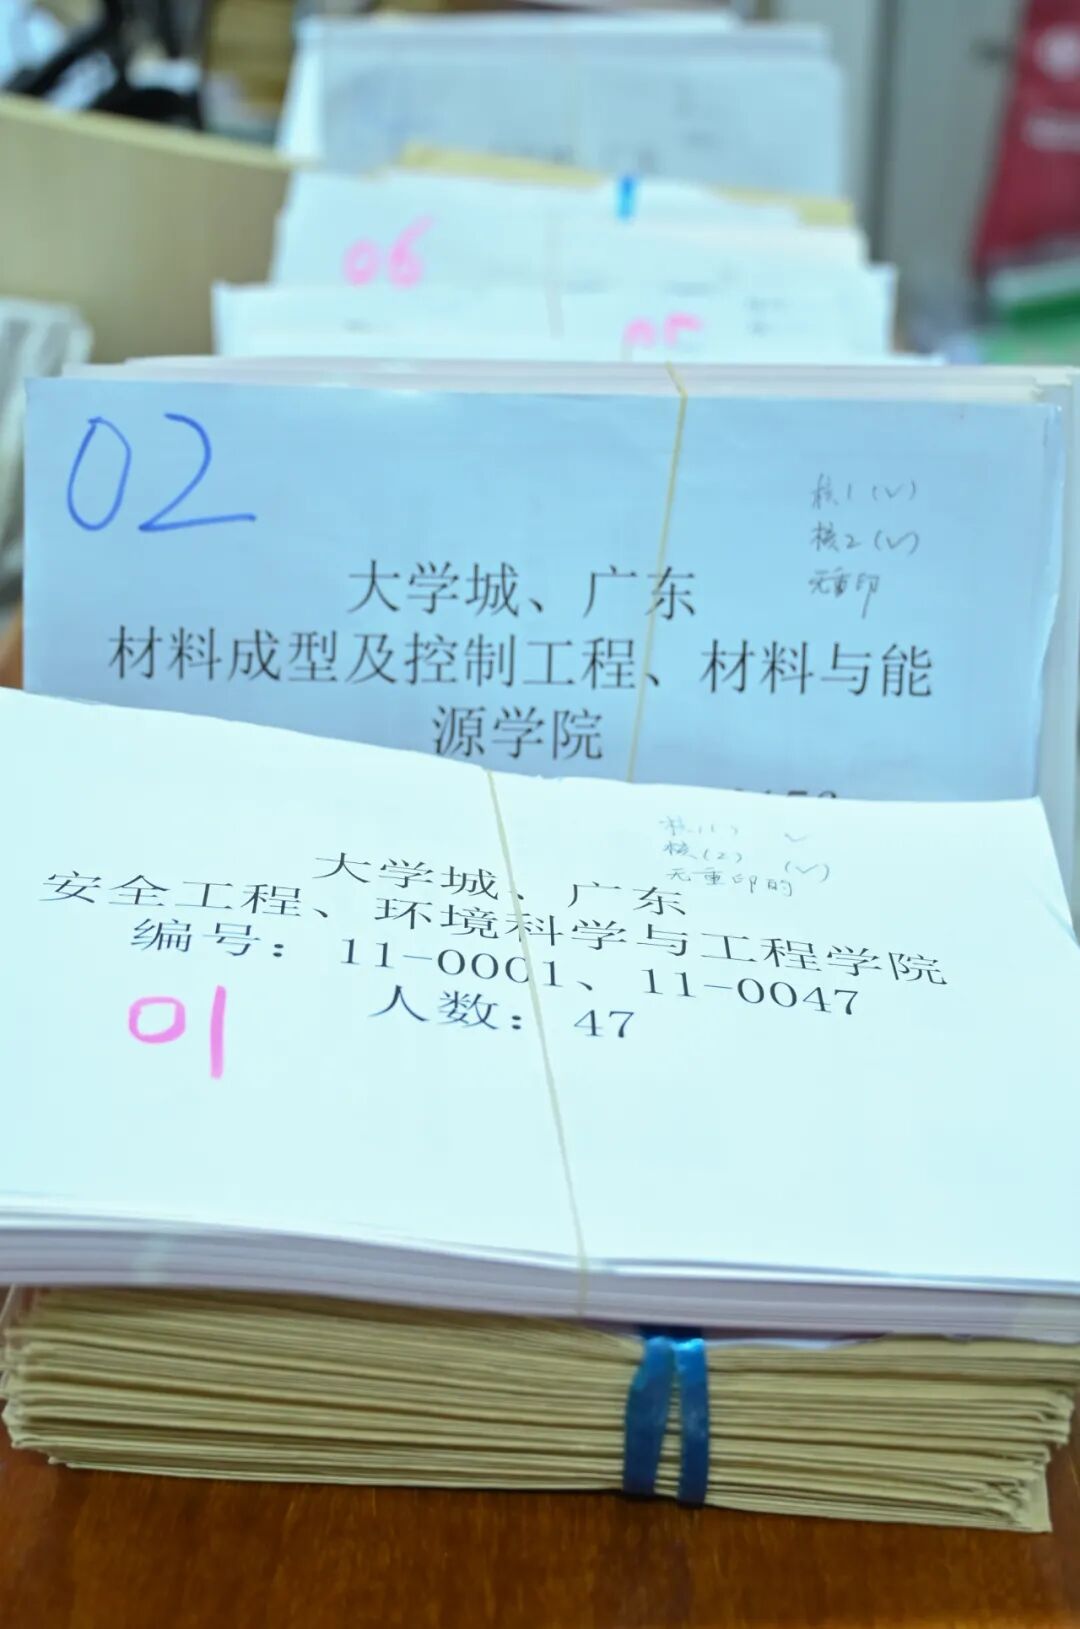 06
05
02
核1(√)
核2(√)
无重印
大学城、广东
材料成型及控制工程、材料与能
源学院
核(2) (√)
无重印的
大学城、广东
安全工程、环境科学与工程学院
编号：11-0001、11-0047
人数：47
01